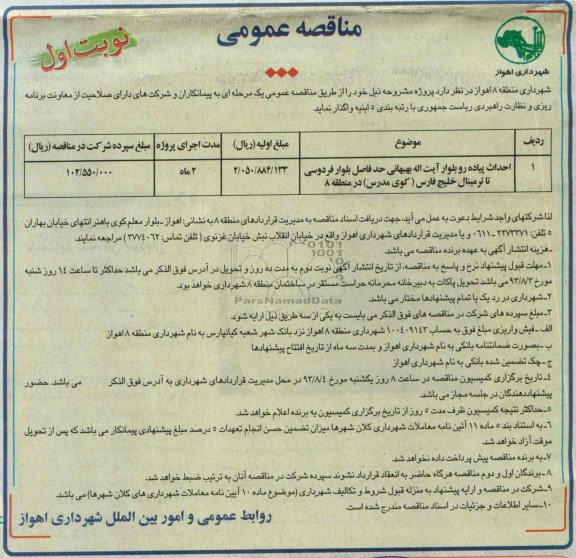 مناقصه عمومی
نوبت اول
شهرداری اهواز
شهرداری منطقه ۸ اهواز در نظر دارد پروژه مشروحه ذیل خود را از طریق مناقصه عمومی یک مرحله ای به پیمانکاران و شرکت های دارای صلاحیت از معاونت برنامه
ریزی و نظارت راهبردی ریاست جمهوری با رتبه بندی ۵ ابنیه واگذار نماید
ردیف موضوع مبلغ اولیه (ریال) مدت اجرای پروژه مبلغ سپرده شرکت در مناقصه (ریال)
۱ احداث پیاده رو بلوار آیت اله بهبهانی حد فاصل بلوار فردوسی ۲/۰۵۰/۸۸۴/۱۳۳ ۲ ماه ۱۰۲/۵۵۰/۰۰۰
تا ترمینال خلیج فارس ( کوی مدرس) در منطقه ۸
لذا شرکتهای واجد شرایط دعوت به عمل می آید، جهت دریافت اسناد مناقصه به مدیریت قراردادهای منطقه ۸ به نشانی: اهواز ـ بلوار معلم کوی باهنر انتهای خیابان بهاران
۵ تلفن: ۲۲۷۳۳۷۱-۰۶۱۱ و یا مدیریت قراردادهای شهرداری اهواز واقع در خیابان انقلاب نبش خیابان غزنوی ( تلفن تماس: ۳۷۷۴۰۶۲ ) مراجعه نمایند.
ـ هزینه انتشار آگهی به عهده برنده مناقصه می باشد.
۱ـ مهلت قبول پیشنهاد نرخ و پاسخ به مناقصه، از تاریخ انتشار آگهی نوبت دوم به مدت ده روز و تحویل در آدرس فوق الذکر می باشد حداکثر تا ساعت ۱۴ روز شنبه
مورخ ۹۳/۸/۳ می باشد. تحویل پاکات به دبیرخانه محرمانه حراست مستقر در ساختمان منطقه ۸ شهرداری خواهد بود.
۲ـ شهرداری در رد یک یا تمام پیشنهادها مختار می باشد.
۳ـ مبلغ سپرده های شرکت در مناقصه های فوق الذکر می بایست به یکی از سه طریق ذیل ارایه شود.
الف ـ فیش واریزی مبلغ فوق به حساب ۱۰۰۴۰۹۱۴۳ شهرداری منطقه ۸ اهواز نزد بانک شهر شعبه کیانپارس به نام شهرداری منطقه ۸ اهواز
ب ـ بصورت ضمانتنامه بانکی به نام شهرداری اهواز و بمدت سه ماه از تاریخ افتتاح پیشنهادها
ج ـ چک تضمین شده بانکی به نام شهرداری اهواز
۴ـ تاریخ برگزاری کمیسیون مناقصه در ساعت ۸ روز یکشنبه مورخ ۹۳/۸/۴ در محل مدیریت قراردادهای شهرداری به آدرس فوق الذکر می باشد. حضور
پیشنهاددهندگان در جلسه مجاز می باشد.
۵ـ حداکثر نتیجه کمیسیون ظرف مدت ۵ روز از تاریخ برگزاری کمیسیون به برنده اعلام خواهد شد.
۶ـ به استناد بند ۵ ماده ۱۱ آئین نامه معاملات شهرداری کلان شهرها میزان تضمین حسن انجام تعهدات ۵ درصد مبلغ پیشنهادی پیمانکار می باشد که پس از تحویل
موقت آزاد خواهد شد.
۷ـ به برنده مناقصه پیش پرداخت داده نخواهد شد.
۸ـ برندگان اول و دوم مناقصه هرگاه حاضر به انعقاد قرارداد نشوند سپرده شرکت در مناقصه آنان به ترتیب ضبط خواهد شد.
۹ـ شرکت در مناقصه و ارایه پیشنهاد به منزله قبول شروط و تکالیف شهرداری (موضوع ماده ۱۰ آیین نامه معاملات شهرداری های کلان شهرها) می باشد.
۱۰ـ سایر اطلاعات و جزئیات در اسناد مناقصه مندرج شده است.
روابط عمومی و امور بین الملل شهرداری اهواز
ParsNamadData